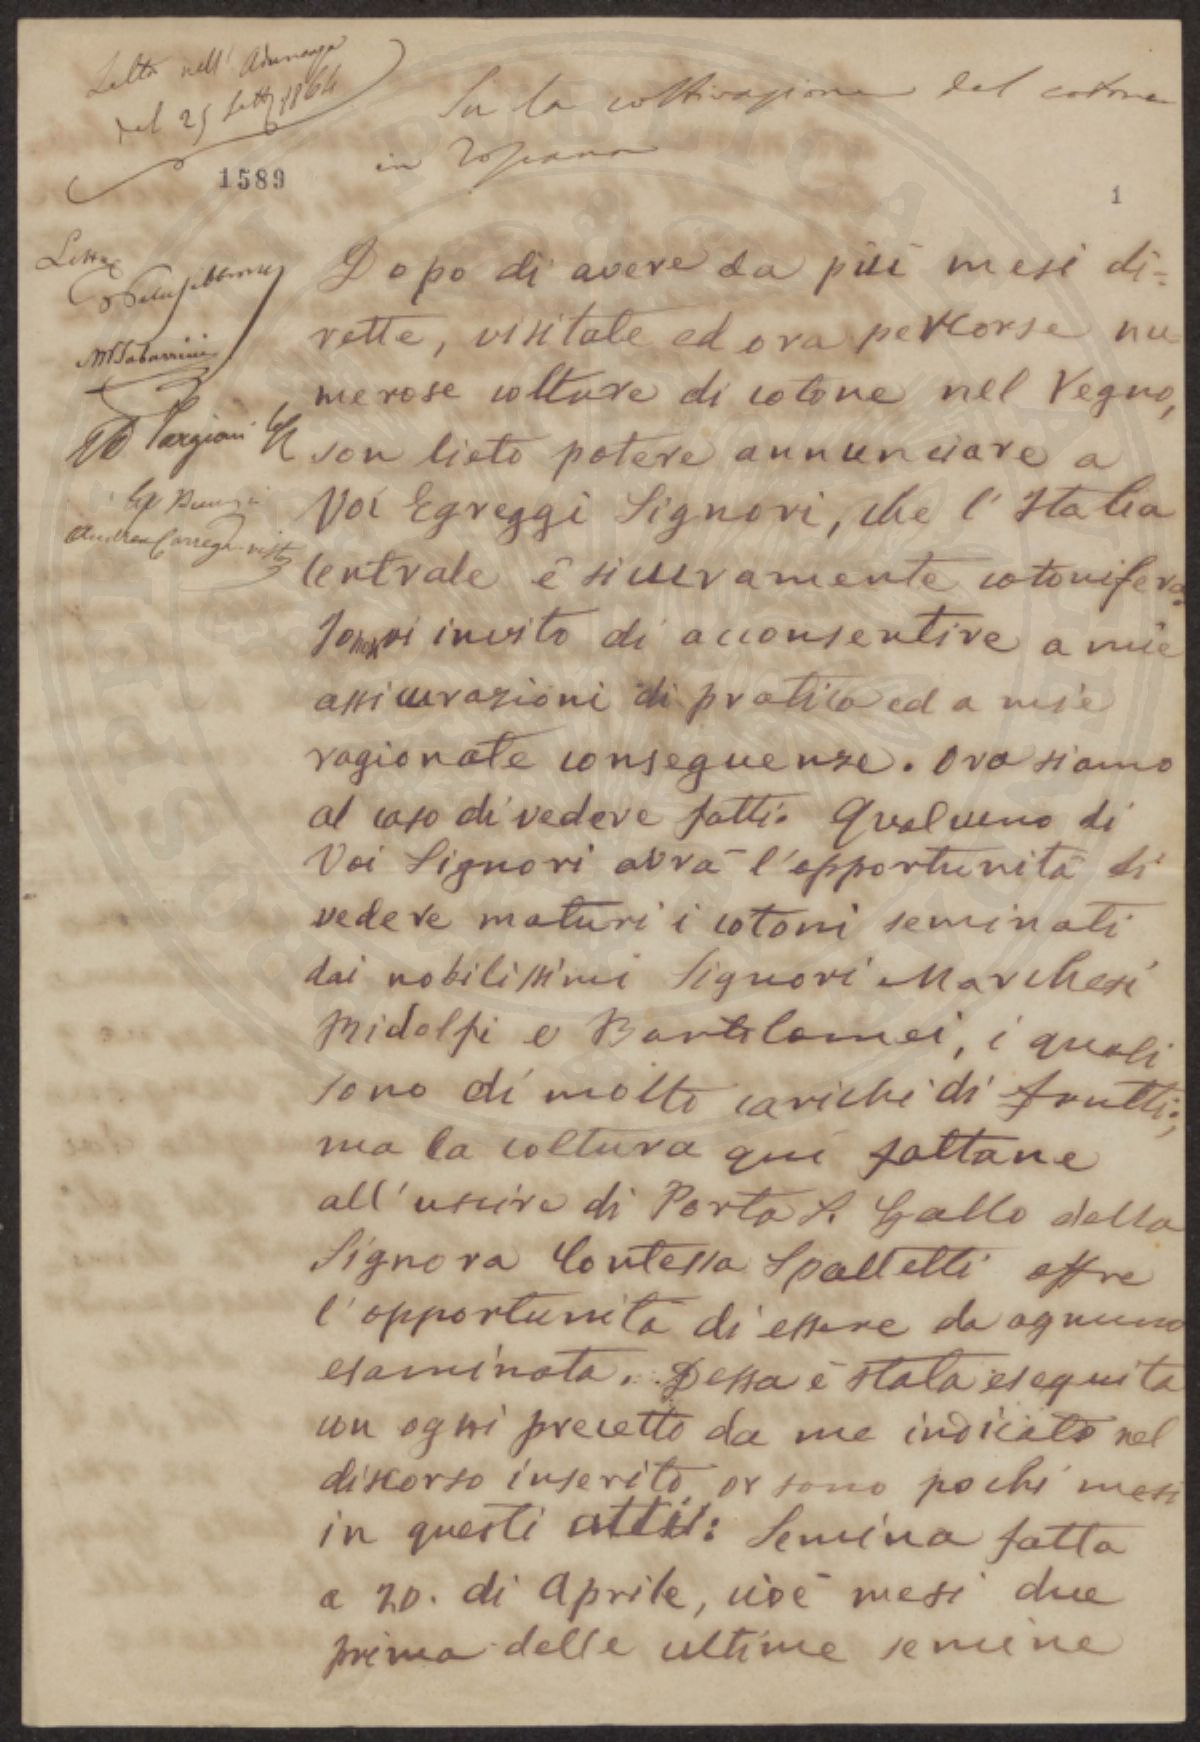 Letta nell' Adunanza
del 25 Sett. 1864
Su la coltivazione del cotone
in Toscana
1589
1
Letta
Dopo di avere da più mesi di=
rette, visitate ed ora percorse nu
merose colture di cotone nel Regno,
son lieto potere annunciare a
Voi Egreggi Signori, che l'Italia
Centrale è sicuramente cotonifera.
vi invito di acconsentire a mie
assicurazioni di pratica ed a mie
ragionate conseguenze. Ora siamo
al caso di vedere fatti. Qualcuno di
Voi Signori avrà l'opportunità di
vedere maturi i cotoni seminati
dai nobilissimi Signori Marchesi
Ridolfi e Bartolomei, i quali
sono di molto carichi di frutti;
ma la coltura qui fattane
all'uscire di Porta S. Gallo della
Signora Contessa Spalletti offre
l'opportunità di essere da ognuno
esaminata. Dessa è stata eseguita
con ogni precetto da me indicato nel
discorso inserito or sono pochi mesi
in questi atti: Semina fatta
a 20. di Aprile, cioè mesi due
prima delle ultime semine
MTabarrini
Targioni
Andrea Carrega visto